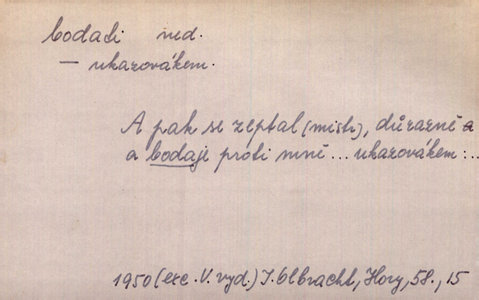 bodati ned.
— ukazovákem.
A pak se zeptal (mistr), důrazně a
a bodaje proti mně ... ukazovákem: ..
1950 (exc. V. vyd.) I. Olbracht, Hory, 58., 15